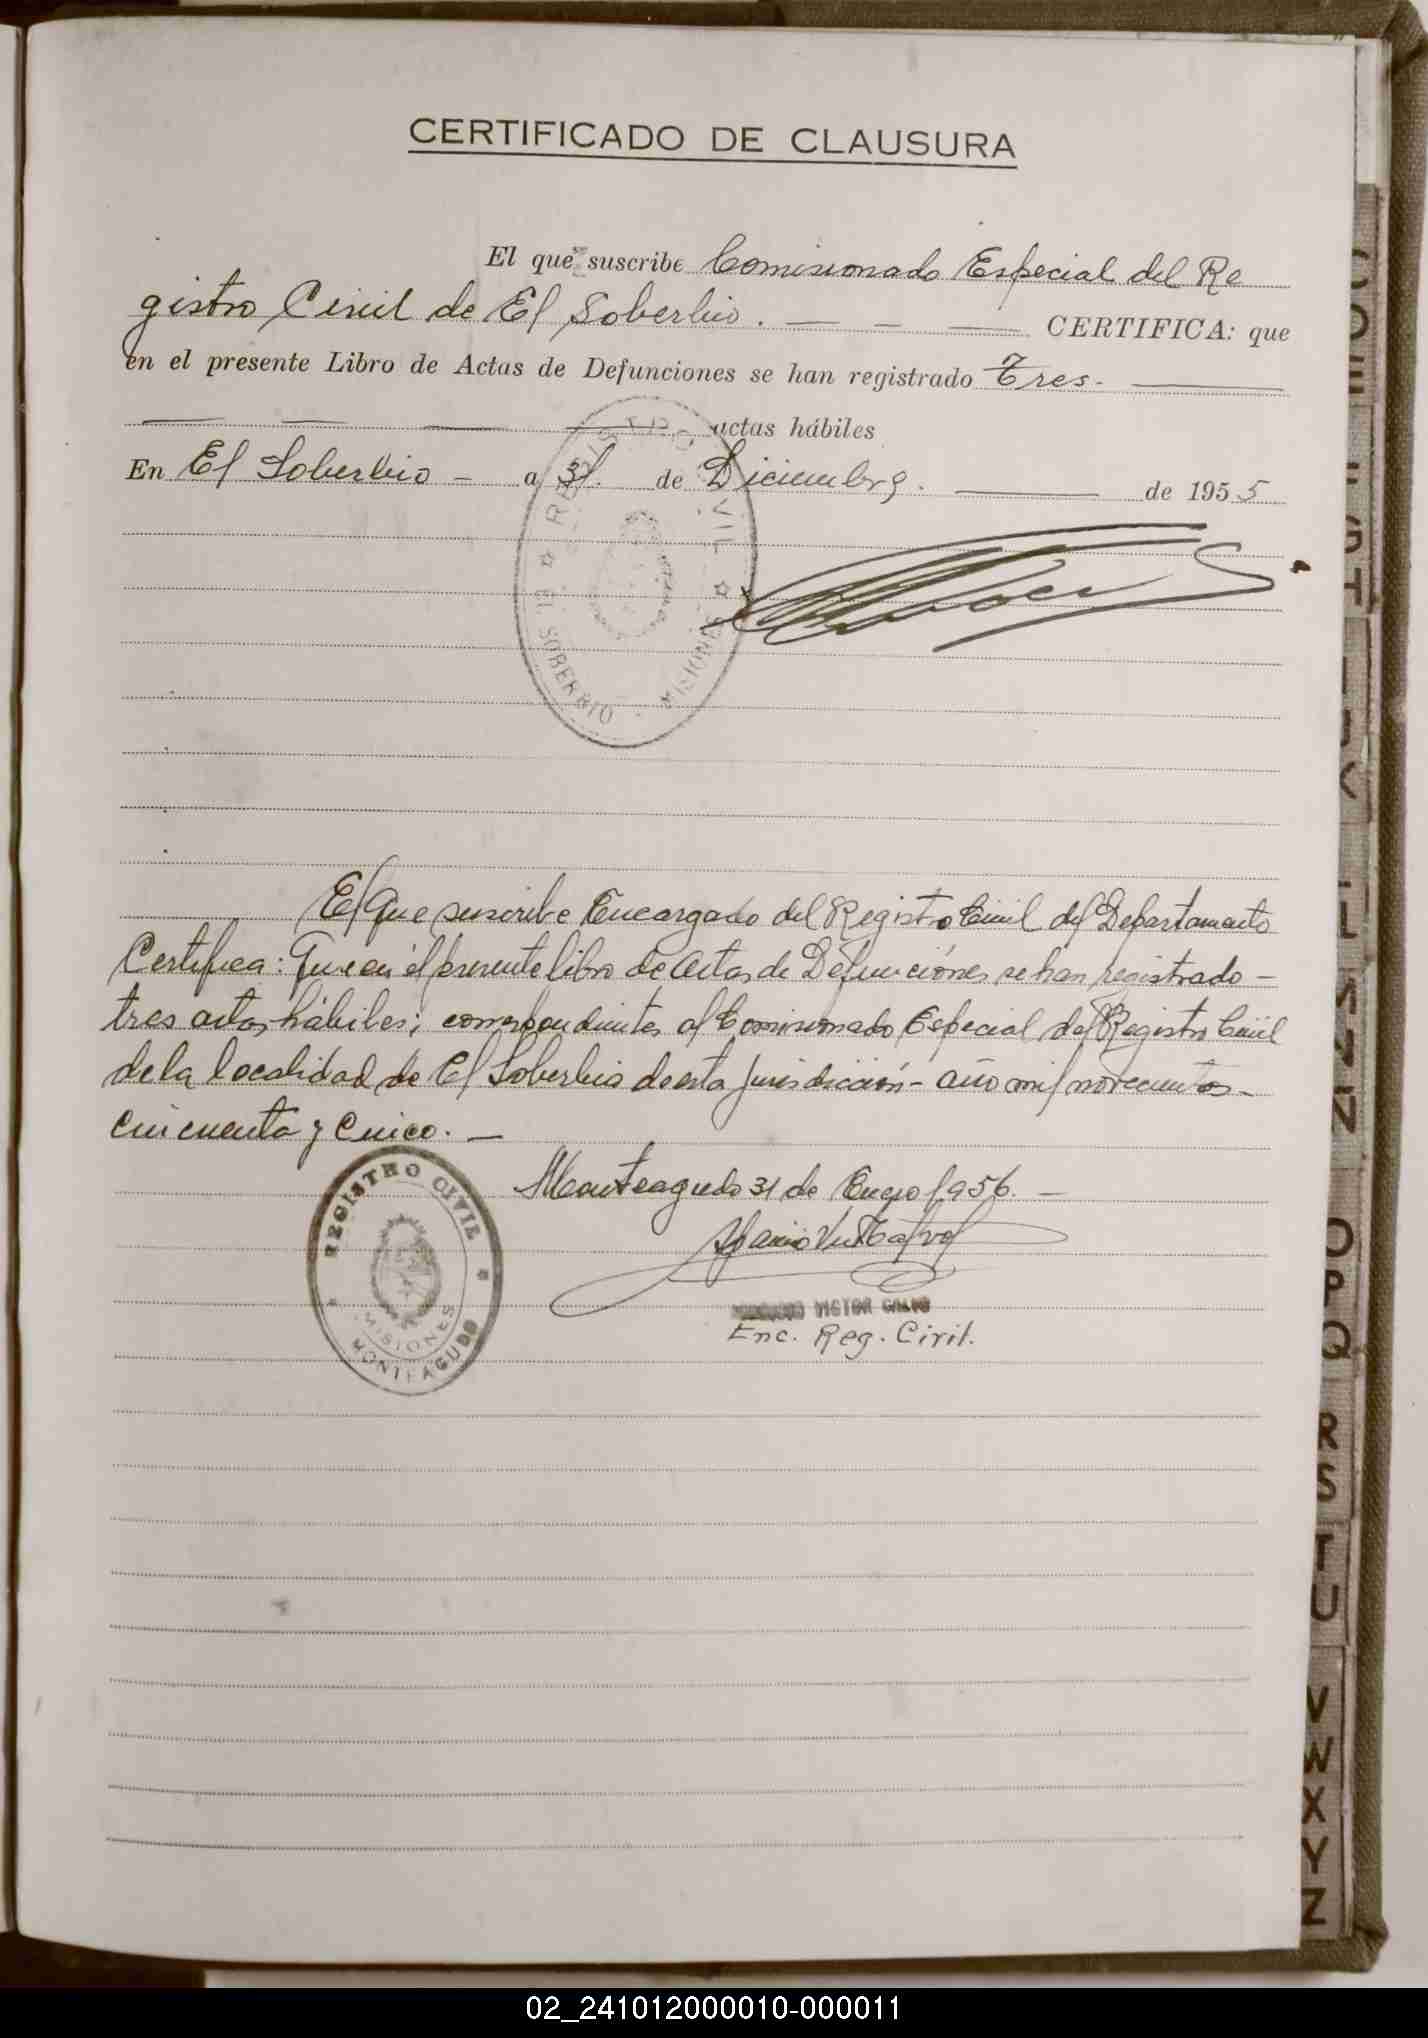 CERTIFICADO DE CLAUSURA
El que suscribe Comisionado Especial del Re
gistro Civil de El Soberbio. — — — CERTIFICA: que
en el presente Libro de Actas de Defunciones se han registrado Tres. —
— — — — actas hábiles
En El Soberbio — a 31. de Diciembre. — de 1955
REGISTRO CIVIL
EL SOBERBIO MISIONES
El que suscribe Encargado del Registro Civil del Departamento
Certifica: Que en el presente libro de actas de Defunciones se han registrado —
tres actas hábiles; correspondientes al Comisionado Especial del Registro Civil
de la localidad de El Soberbio de esta jurisdicción — año mil novecientos —
cincuenta y cinco. —
Monteagudo 31 de Enero 1956. —
REGISTRO CIVIL
MISIONES
MONTEAGUDO
VICTOR GALVO
Enc. Reg. Civil.
O
P
Q
R
S
T
U
V
W
X
Y
Z
02_241012000010-000011